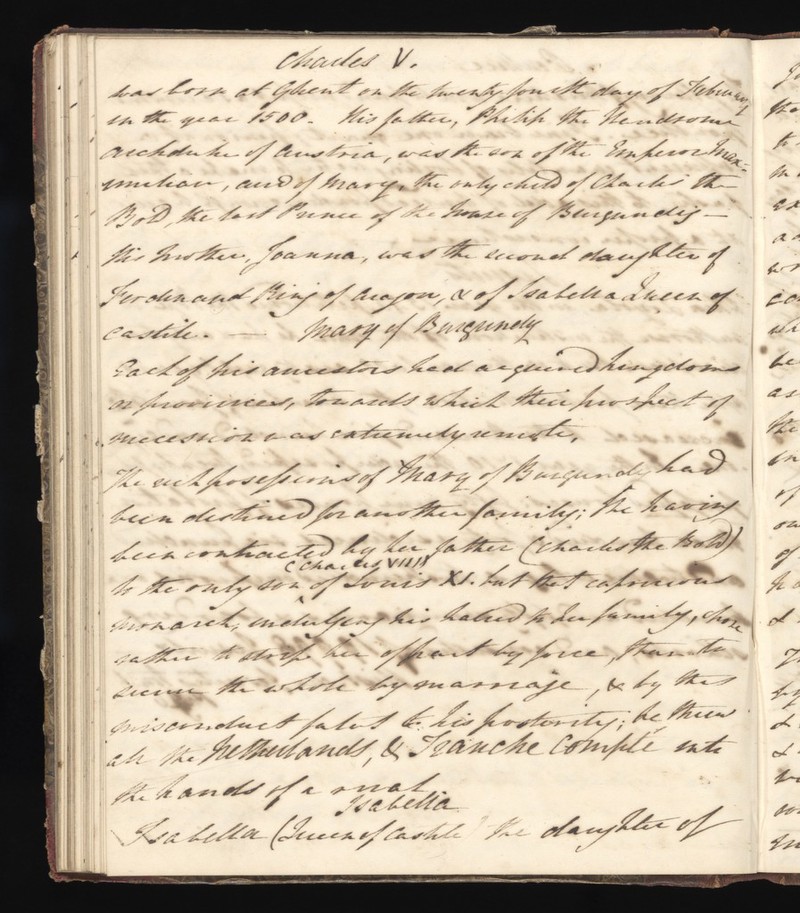 Charles V.
was born at Ghent on the twenty fourth day of February
in the year 1500. His father, Philip the Handsome
Archduke of Austria, was the son of the Emperor Max=
imilian, and of Mary, the only child of Charles the
Bold, the last Prince of the House of Burgundy —
His Mother, Joanna, was the second daughter of
Ferdinand King of Aragon, & of Isabella Queen of
Castile. — Mary of Burgundy
Each of his ancestors had acquired kingdoms
or provinces, towards which their prospect of
succession was extremely remote,
The rich possessions of Mary of Burgundy had
been destined for another family; she having
been contracted by her father (Charles the Bold)
(Charles VIII)
to the only son of Louis XI. but that capricious
monarch, indulging his hatred to her family, chose
rather to strip her of part by force, than to
secure the whole by marriage, & by this
misconduct fatal to his posterity; he threw
all the Netherlands, & Franche Compté into
the hands of a rival
Isabella
Isabella (Queen of Castile) the daughter of